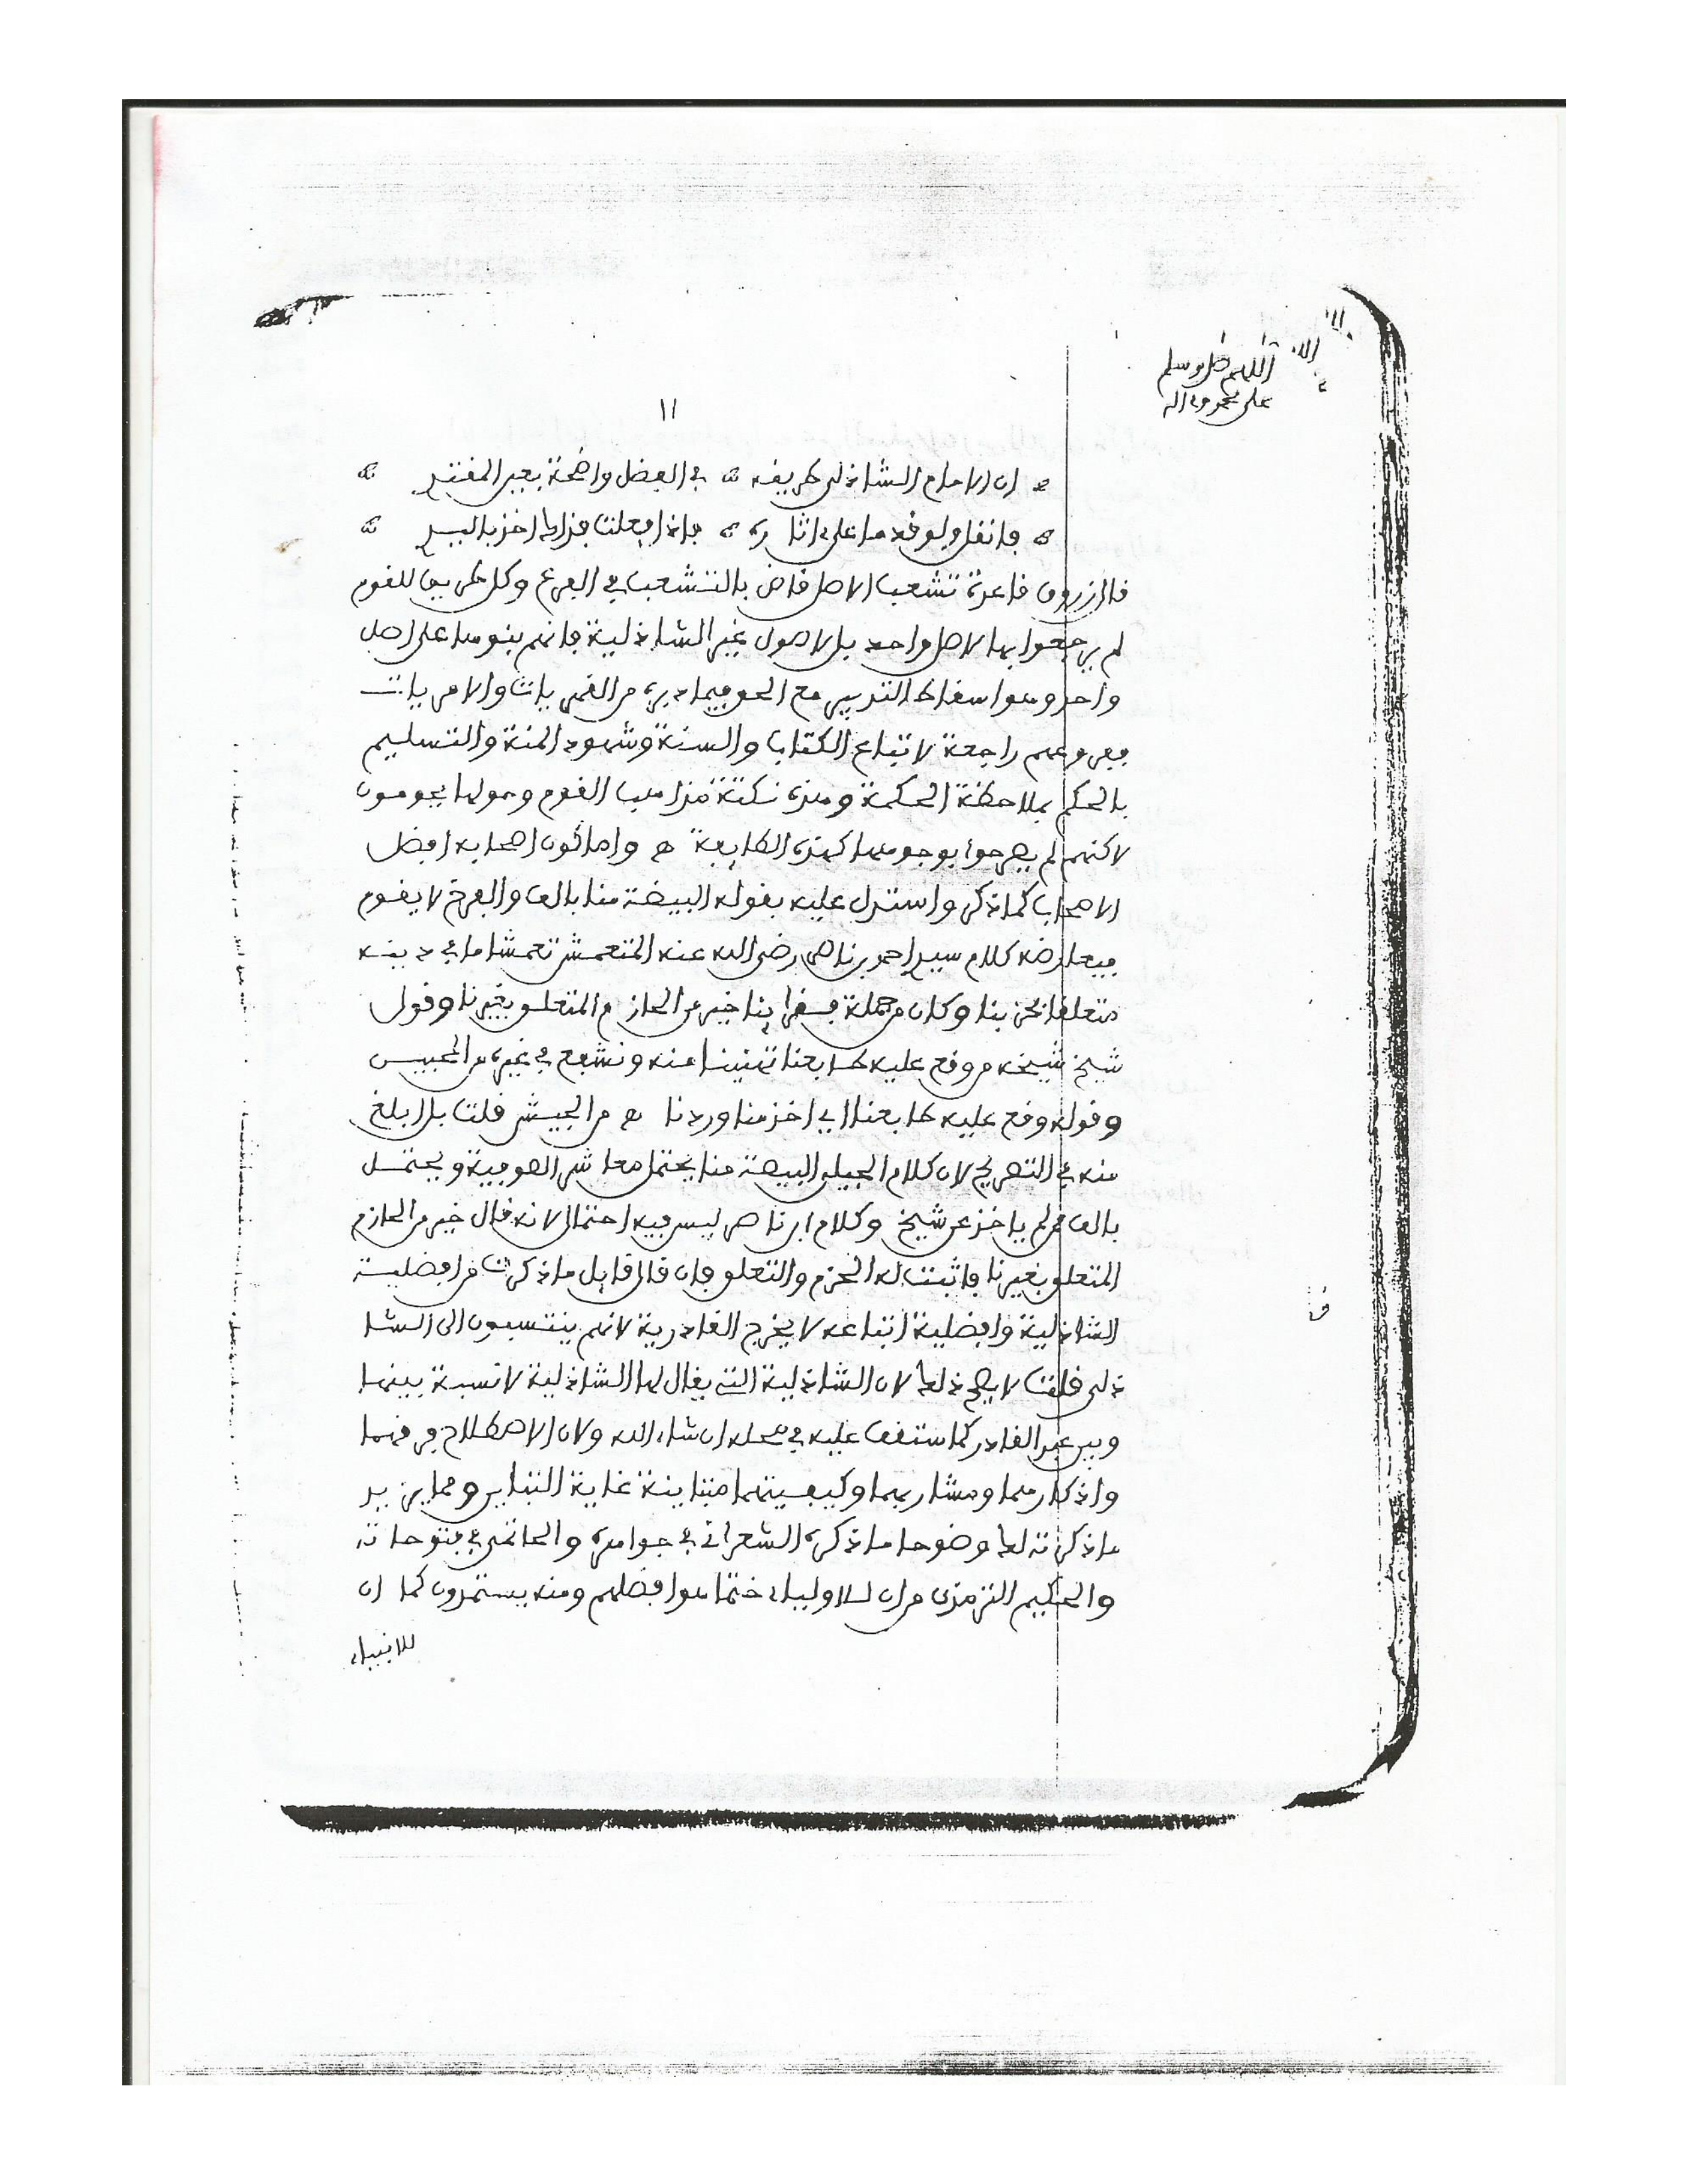 اللهم صل وسلم
على محمد وءاله
١١
ان الامام الشاذلي طريقه في الفضل واضحة بعين المهتدي
فانقل ولو قدما على اثاره فاذا فعلت فذاك اخذ باليد
قال زروق قاعدة تشعب الاصل قاض بالتشعب في الفرع وكل طريق للقوم
لم يرجعوا بها لاصل واحد بل لاصول غير الشاذلية فانهم بنوها على اصل
واحد وهو اسقاط التدبير مع الحق فيما دبره من القهريات والامريات
ففروعهم راجعة لاتباع الكتاب والسنة وشهود المنة والتسليم
بالحكم بملاحظة الحكمة وهذه نكتة مذاهب القوم وحولها يحومون
لاكنهم لم يصرحوا بوجوهها كهذه الطايفة واما كون اصحابه افضل
الاصحاب كما ذكر واستدل عليه بقوله البيضة منا بالف والفرخ لا يقوم
فيعارضه كلام سيد احمد بن ناصر رضي الله عنه المتعمش تعمشا ما في دينه
متعلقا بحزبنا وكان من جملة فقرائنا خير من الحازم المتعلق بغيرنا وقول
شيخ شيخه من وقع عليه طابعنا تهنينا منه ونشفع في غيره من الحبيس
وقوله وقع عليه طابعنا اي اخذ منا وردنا من الجيش قلت بل ابلغ
منه في التصريح لان كلام الجيلي البيضة منا يحتمل معاشر الصوفية ويحتمل
بالف ممن لم ياخذ عن شيخ وكلام ابن ناصر ليس فيه احتمال لانه قال خير من الحازم
المتعلق بغيرنا فاثبت له الحزم والتعلق فان قال قايل ما ذكرت من افضلية
الشاذلية وافضلية اتباعه لا يخرج القادرية لانهم ينتسبون الى الشا
ذلي قلت لا يصح ذلك لان الشاذلية التي يقال لها الشاذلية لا نسبة بينها
وبين عبد القادر كما ستقف عليه في محله ان شاء الله ولان الاصطلاح فرقهما
واذكارهما ومشاربهما وكيفيتهما متباينة غاية التباين ومما يزيد
ما ذكرته لك وضوحا ما ذكره الشعراني في جواهره والحاتمي في فتوحاته
والحكيم الترمذي من ان للاولياء ختما هو افضلهم ومنه يستمدون كما ان
للانبياء